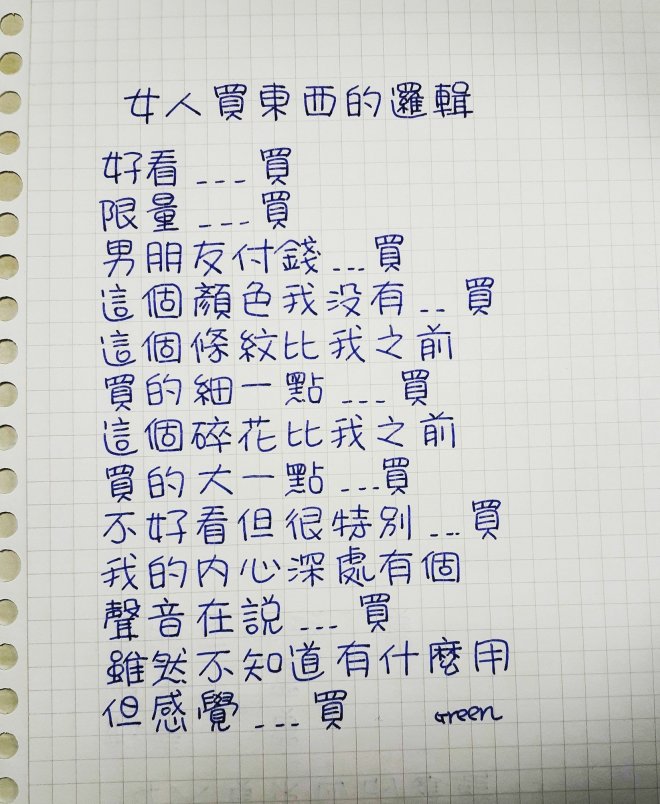 女人買東西的邏輯
好看---買
限量---買
男朋友付錢...買
這個顏色我没有..買
這個條紋比我之前
買的細一點---買
這個碎花比我之前
買的大一點---買
不好看但很特別...買
我的内心深處有個
聲音在説---買
雖然不知道有什麼用
但感覺---買
Green